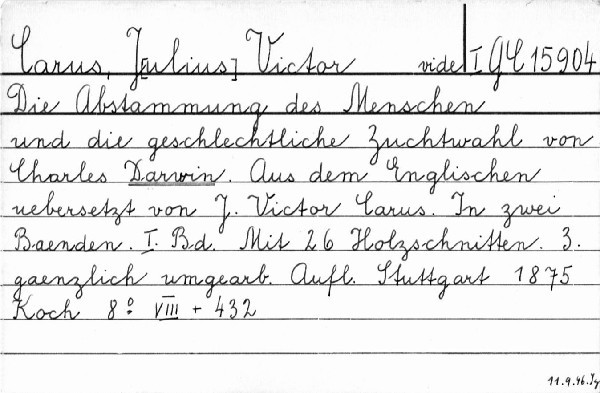 Carus, J[ulius] Victor vide I GC 15904
Die Abstammung des Menschen
und die geschlechtliche Zuchtwahl von
Charles Darwin. Aus dem Englischen
uebersetzt von J. Victor Carus. In zwei
Baenden. I. Bd. Mit 26 Holzschnitten. 3.
gaenzlich umgearb. Aufl. Stuttgart 1875
Koch 8° VIII + 432
11.9.46.